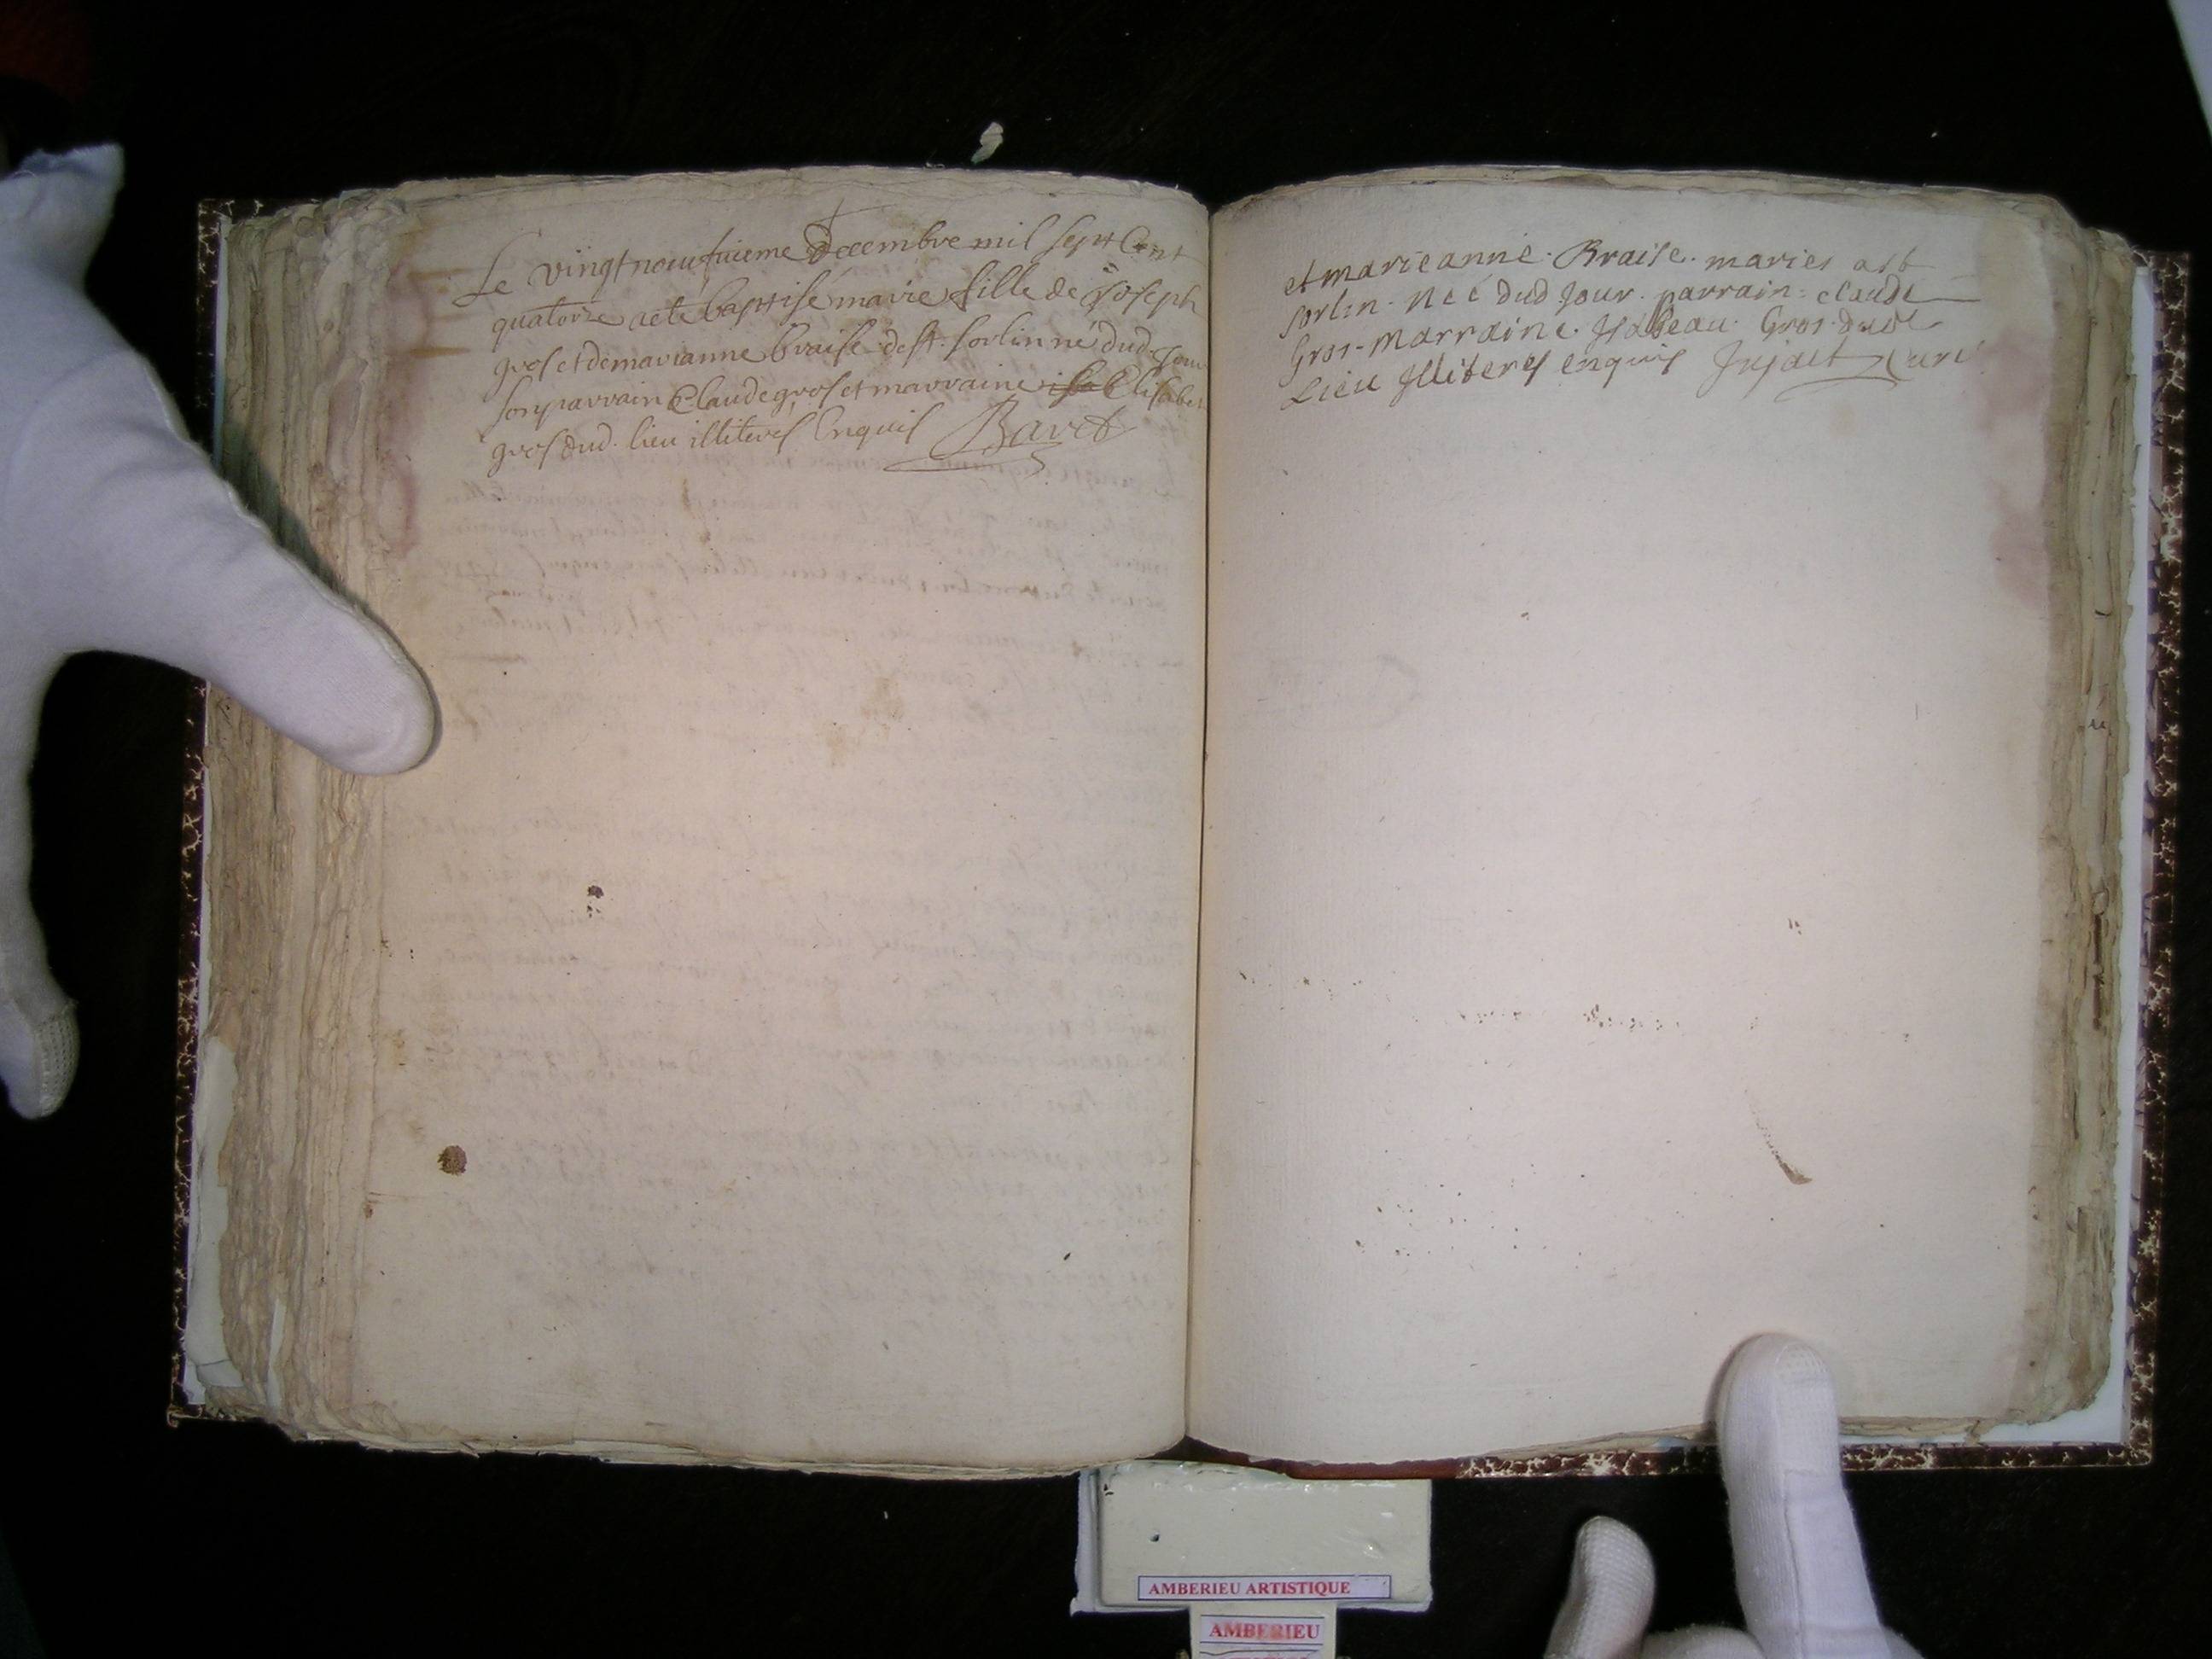 Le vingt neufuieme Decembre mil sept Cent
quatorze a eté baptisé marie fille de Joseph
gros et de marianne braise de st. sorlin né dud. Jour
son parrain Claude gros et marraine Elisabet
gros dud. lieu illiterés Enquis Baret
et marieanne. Braise. mariés a st
sorlin. Née dud Jour. parrain: claude
Gros. Marraine. Isabeau. Gros. dud
Lieu Illiterés enquis Curé
AMBERIEU ARTISTIQUE
AMBERIEU